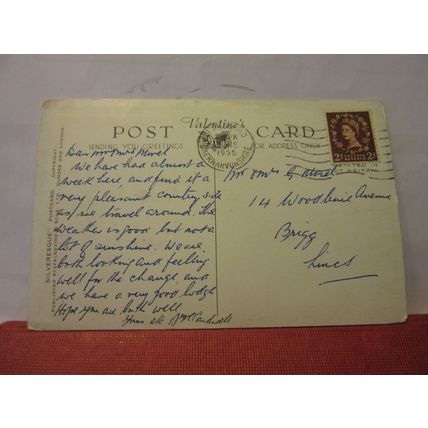 Valentine's
POST CARD
SENDING YOU GREETINGS
FOR ADDRESS ONLY
"SILVERESQUE" POSTCARD. COPYRIGHT
CAERNARVONSHIRE
1955
POSTAGE REVENUE
2d 2d
Dear Mr & Mrs
We have had almost a
week here, and find it a
very pleasant country side
as we travel around. The
weather is good but not a
lot of sunshine. We are
both looking and feeling
well for the change and
we have a very good lodge
Hope you are both well
Yours etc
Mr & Mrs G
14 Woodbine Avenue
Brigg
Lincs